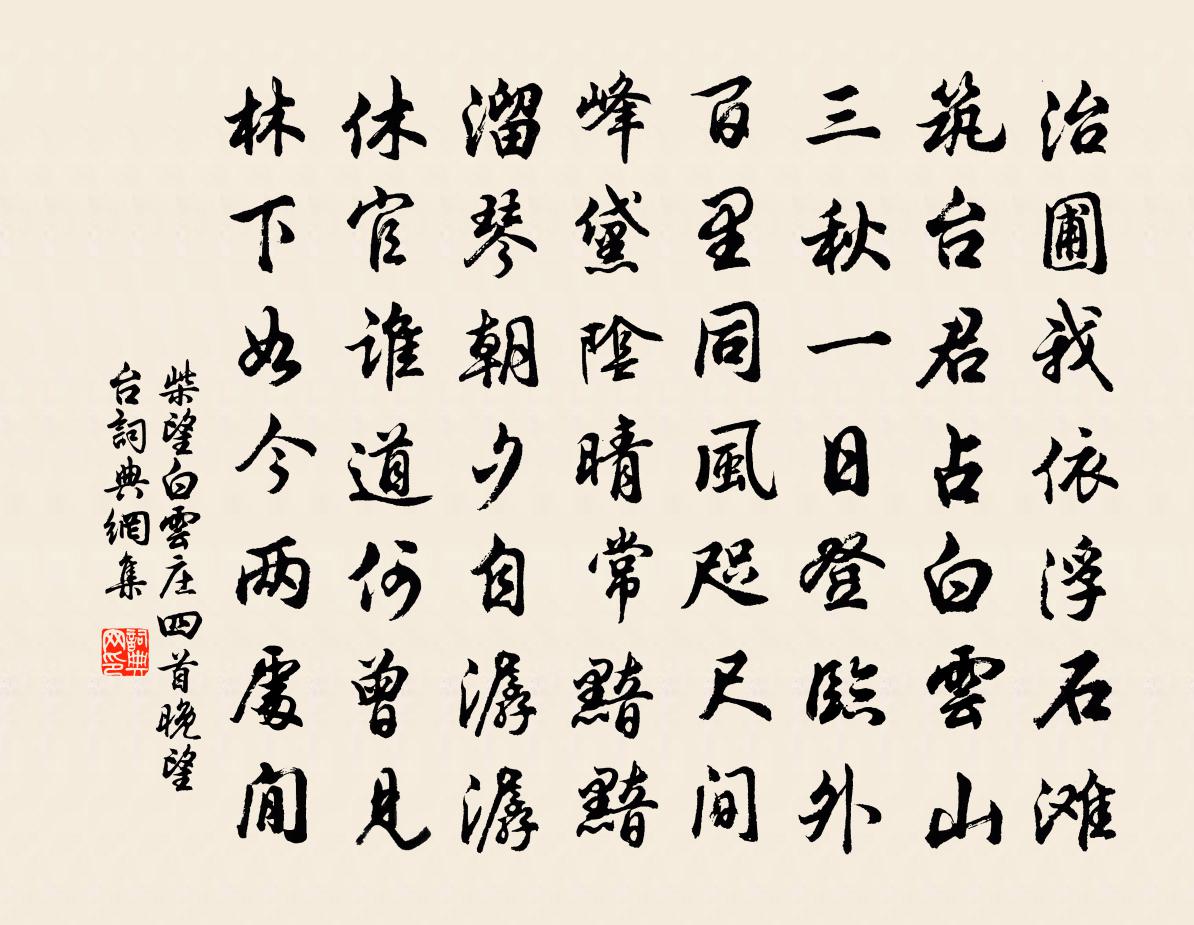 治圃我依浮石滩
筑台君占白雲山
三秋一日登臨外
百里同風咫尺间
峰黛陰晴常黯黯
溜琴朝夕自潺潺
休官谁道何曾见
林下如今两處閒
柴望白雲庄四首晚望
台詞典網集
詞典网印